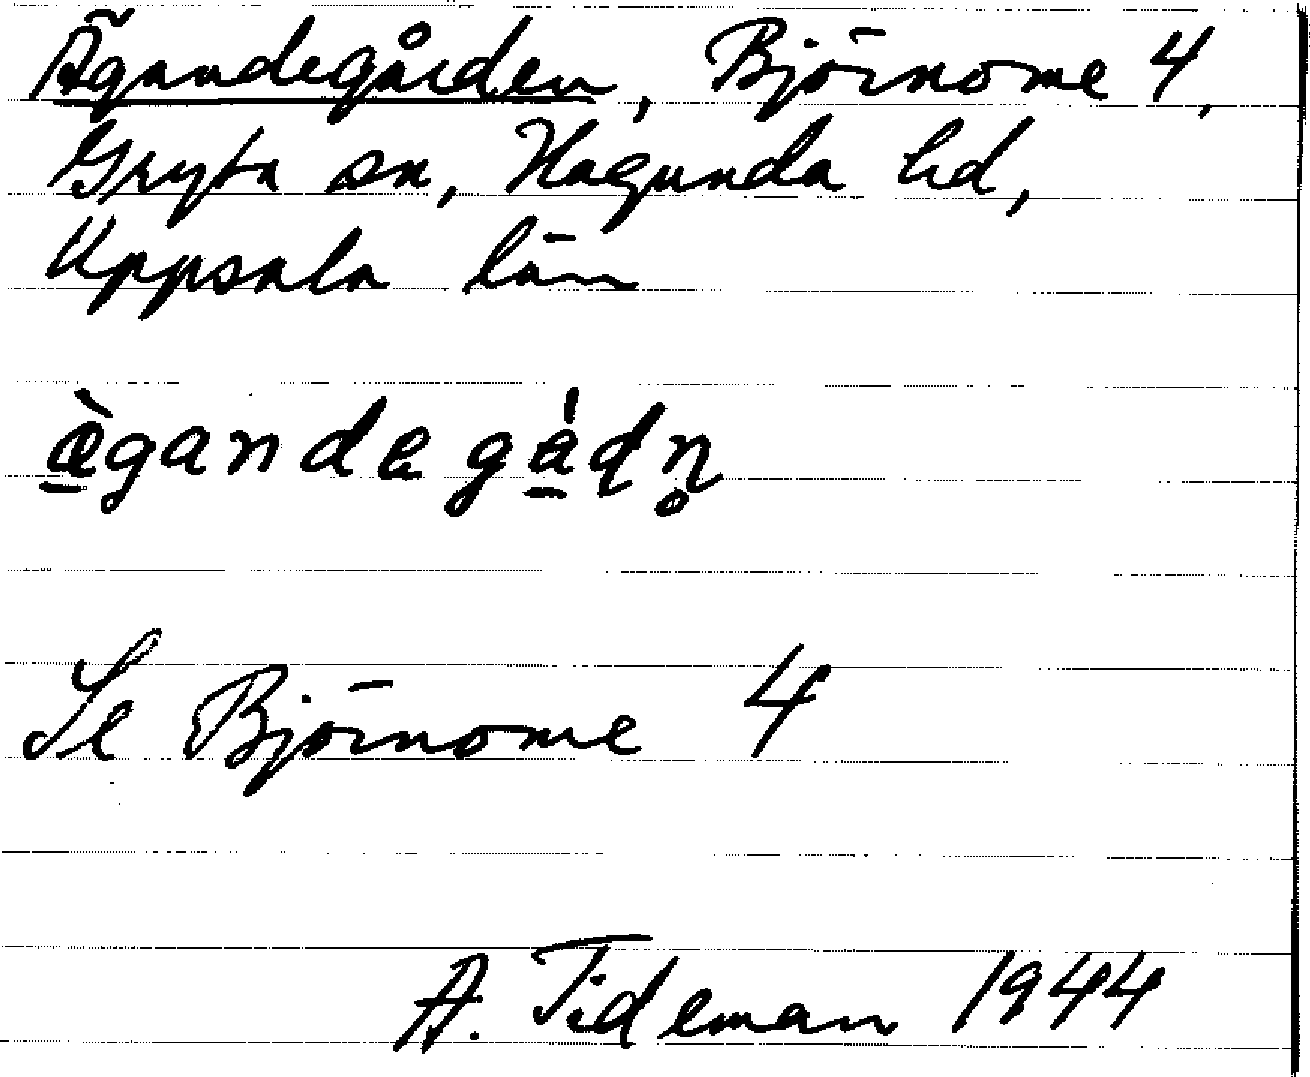 Ägandegården, Björnome 4,
Gryta sn, Hagunda hd,
Uppsala län
æ̠̀gandegȧ̠dn̥
Se Björnome 4
A. Tideman 1944